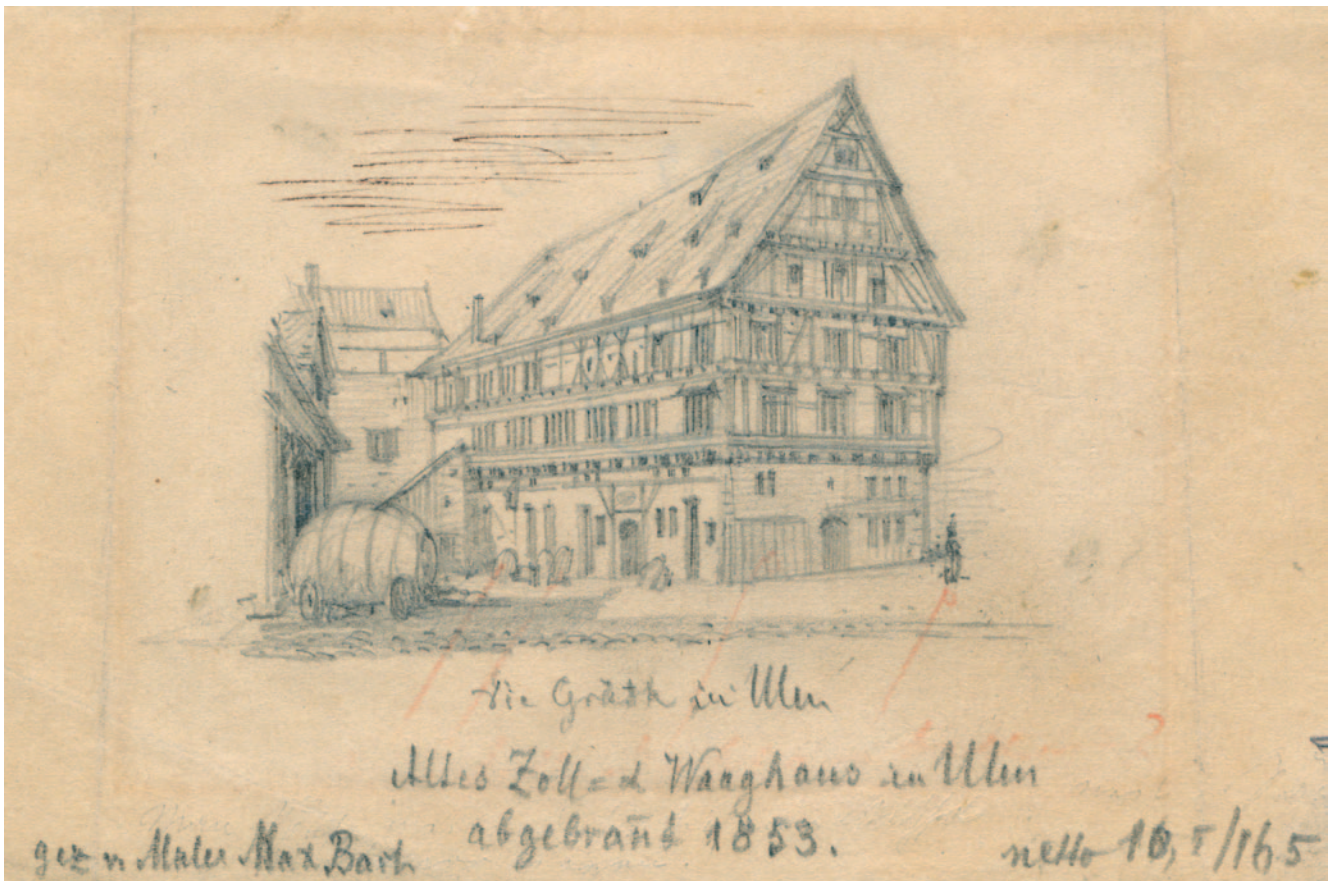 Die Gräth in Ulm
Altes Zoll= & Waaghaus in Ulm
abgebrañt 1853.
gez v Maler Max Bach
netto